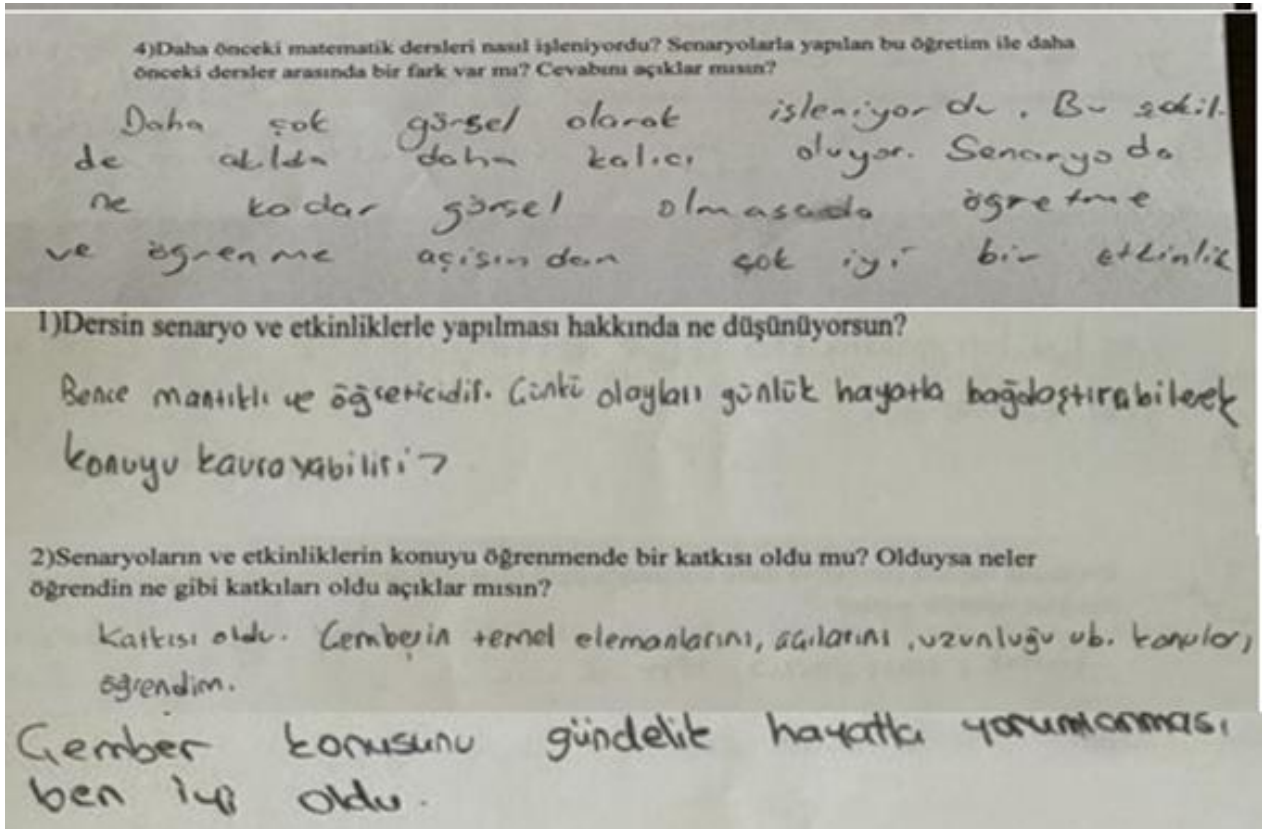 4)Daha önceki matematik dersleri nasıl işleniyordu? Senaryolarla yapılan bu öğretim ile daha
önceki dersler arasında bir fark var mı? Cevabını açıklar mısın?
Daha çok görsel olarak işleniyordu. Bu şekil-
de akılda daha kalıcı oluyor. Senaryoda
ne kadar görsel olmasada öğretme
ve öğrenme açısından çok iyi bir etkinlik
1)Dersin senaryo ve etkinliklerle yapılması hakkında ne düşünüyorsun?
Bence mantıklı ve öğreticidir. Çünkü olayları günlük hayatla bağdaştırabilerek
konuyu kavrayabiliriz
2)Senaryoların ve etkinliklerin konuyu öğrenmende bir katkısı oldu mu? Olduysa neler
öğrendin ne gibi katkıları oldu açıklar mısın?
Katkısı oldu. Çemberin temel elemanlarını, açılarını, uzunluğu vb. konuları
öğrendim.
Çember konusunu gündelik hayatla yorumlanması
ben iyi oldu.